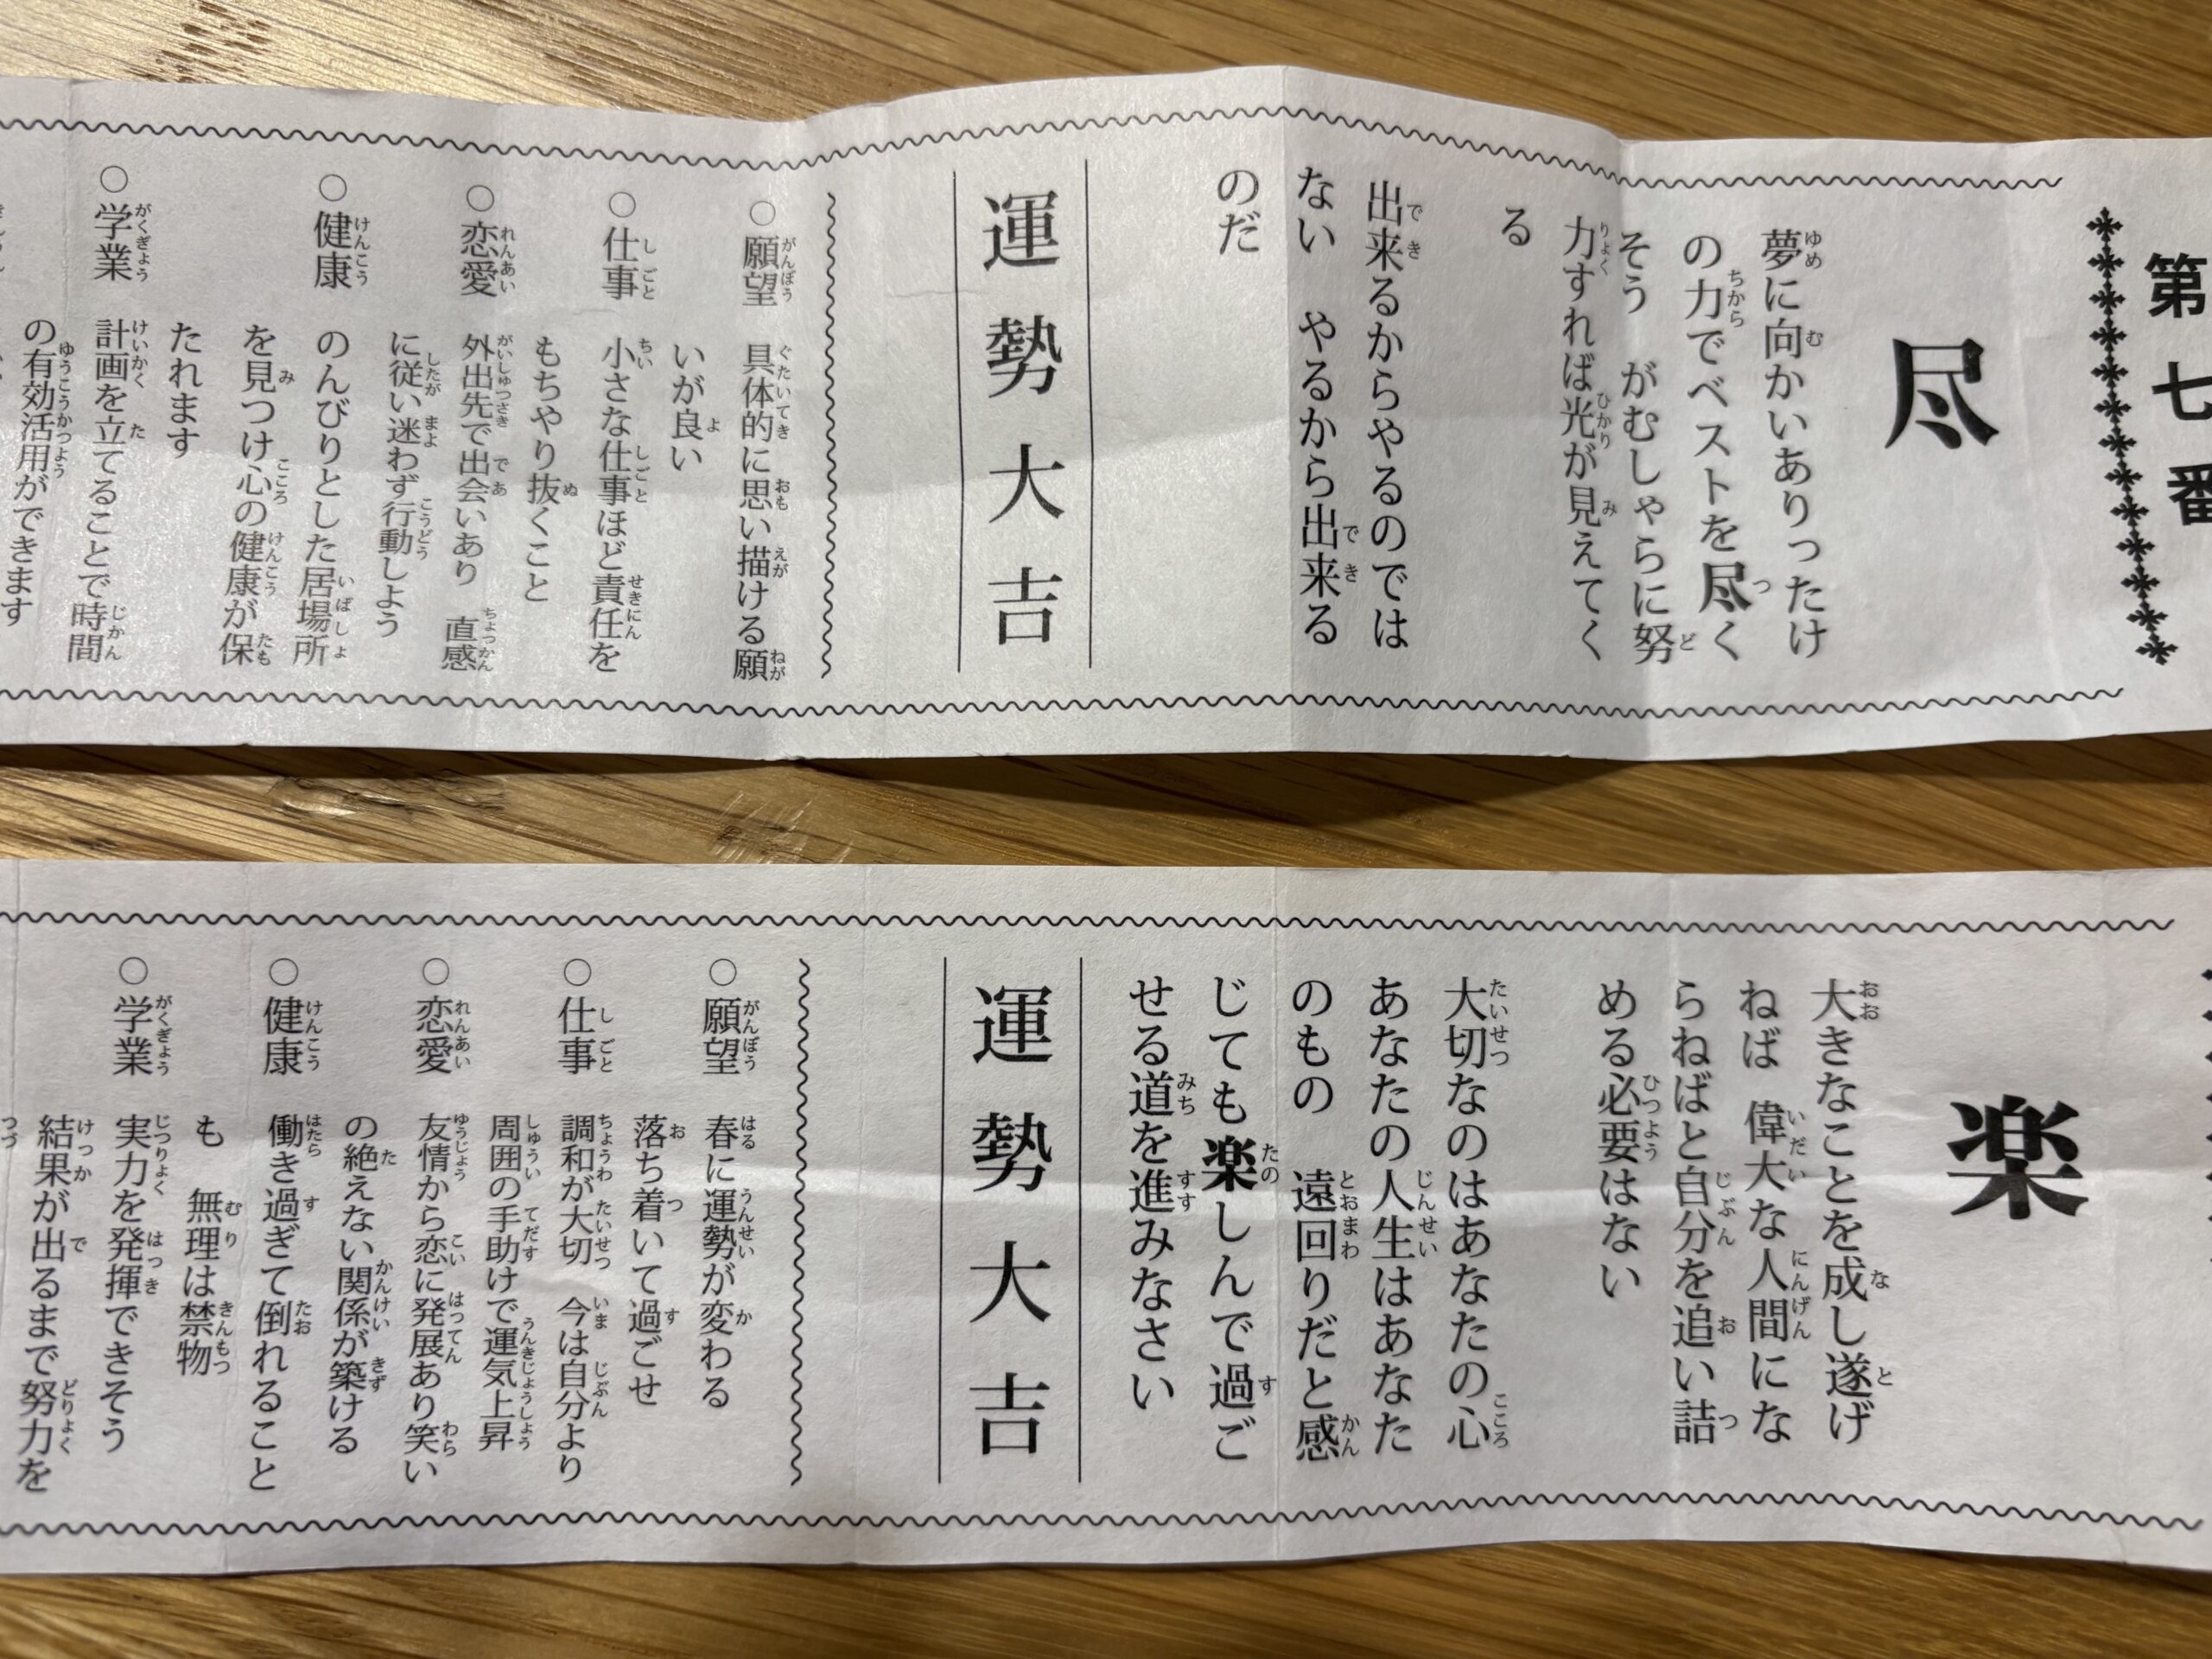 第七番
尽
夢に向かいありったけ
の力でベストを尽く
そう　がむしゃらに努
力すれば光が見えてく
る
出来るからやるのでは
ない　やるから出来る
のだ
運勢大吉
○願望　具体的に思い描ける願
いが良い
○仕事　小さな仕事ほど責任を
もちやり抜くこと
○恋愛　外出先で出会いあり　直感
に従い迷わず行動しよう
○健康　のんびりとした居場所
を見つけ心の健康が保
たれます
○学業　計画を立てることで時間
の有効活用ができます
楽
大きなことを成し遂げ
ねば　偉大な人間にな
らねばと自分を追い詰
める必要はない
大切なのはあなたの心
あなたの人生はあなた
のもの　遠回りだと感
じても楽しんで過ご
せる道を進みなさい
運勢大吉
○願望　春に運勢が変わる
落ち着いて過ごせ
○仕事　調和が大切　今は自分より
周囲の手助けで運気上昇
○恋愛　友情から恋に発展あり笑い
の絶えない関係が築ける
○健康　働き過ぎて倒れること
も　無理は禁物
○学業　実力を発揮できそう
結果が出るまで努力を